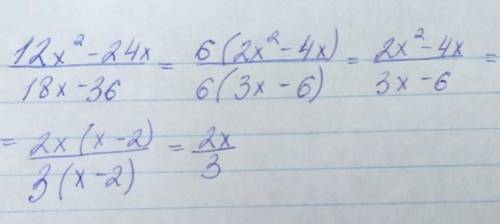 (12x² - 24x)/(18x - 36) = (6(2x² - 4x))/(6(3x - 6)) = (2x² - 4x)/(3x - 6) =
= (2x(x - 2))/(3(x - 2)) = 2x/3